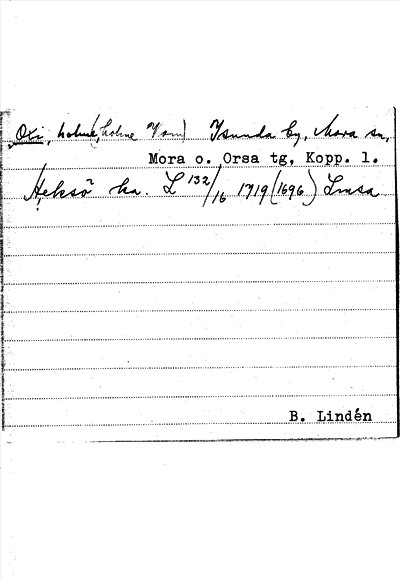 Oxi, holme (holme Y sn) Ysunda by, Mora sn,
Mora o. Orsa tg, Kopp. l.
ka. L 132/16 1719 (1696) Lmsa
B. Lindén